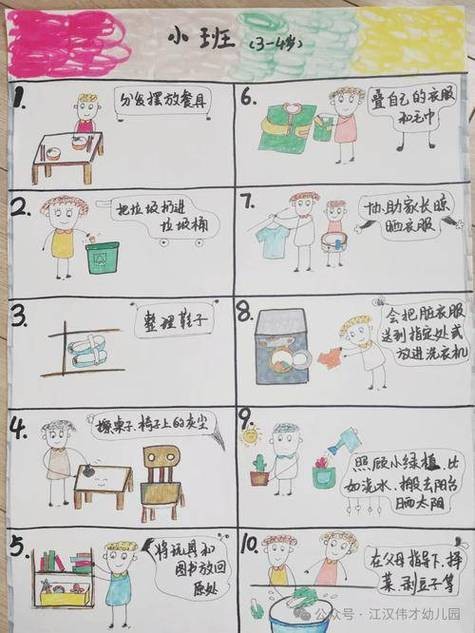 小班 (3-4岁)
1.
分发摆放餐具
2.
把垃圾扔进
垃圾桶
3.
整理鞋子
4.
擦桌子、椅子上的灰尘
5.
将玩具和
图书放回
原处
6.
叠自己的衣服
和毛巾
7.
协助家长晾
晒衣服
8.
会把脏衣服
送到指定处或
放进洗衣机
9.
照顾小绿植,比
如浇水、搬去阳台
晒太阳
10.
在父母指导下,择
菜、剥豆子等
公众号·江汉伟才幼儿园